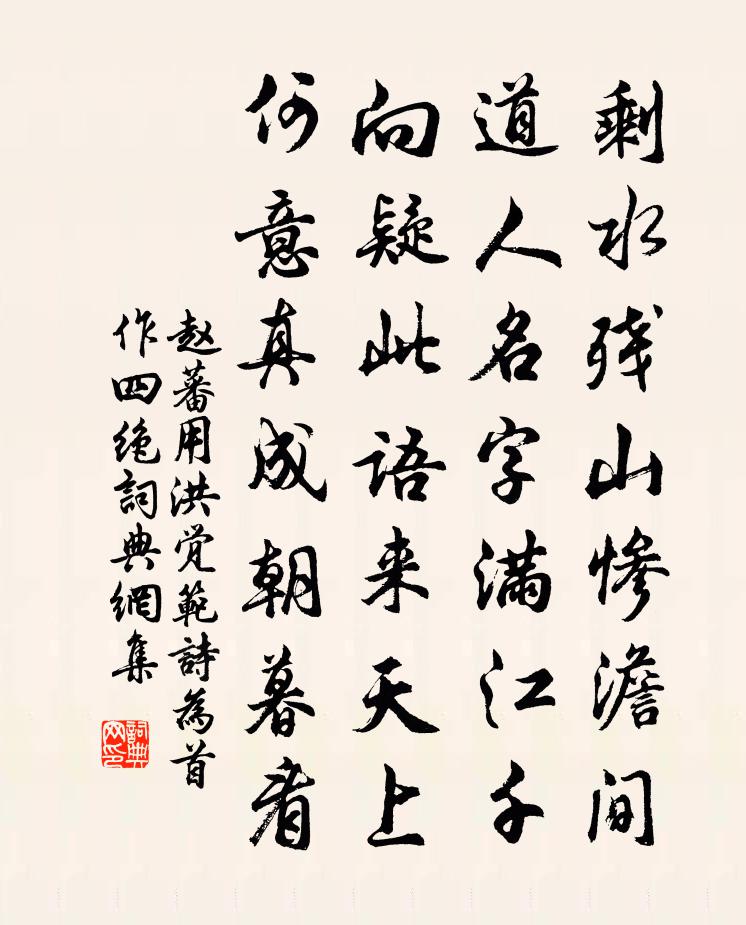 剩水残山惨澹间
道人名字满江千
向疑此语来天上
何意真成朝暮看
赵蕃用洪觉範詩為首
作四绝詞典網集
詞典网印